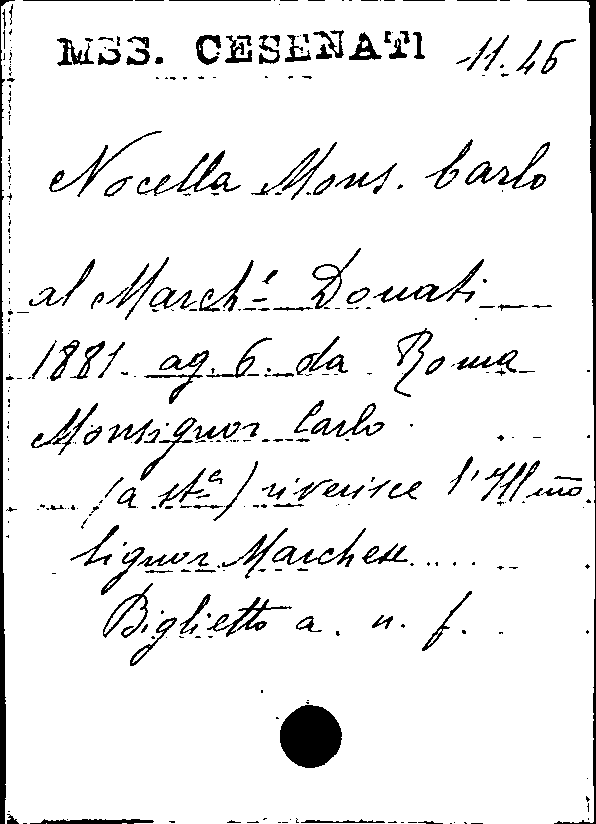 MSS. CESENATI 11.46
Nocella Mons. Carlo
al March.é Donati
1881. ag. 6. da Roma
Monsignor Carlo
(a stª) riverisce l'Illmo
Signor Marchese....
Biglietto a. n. f.